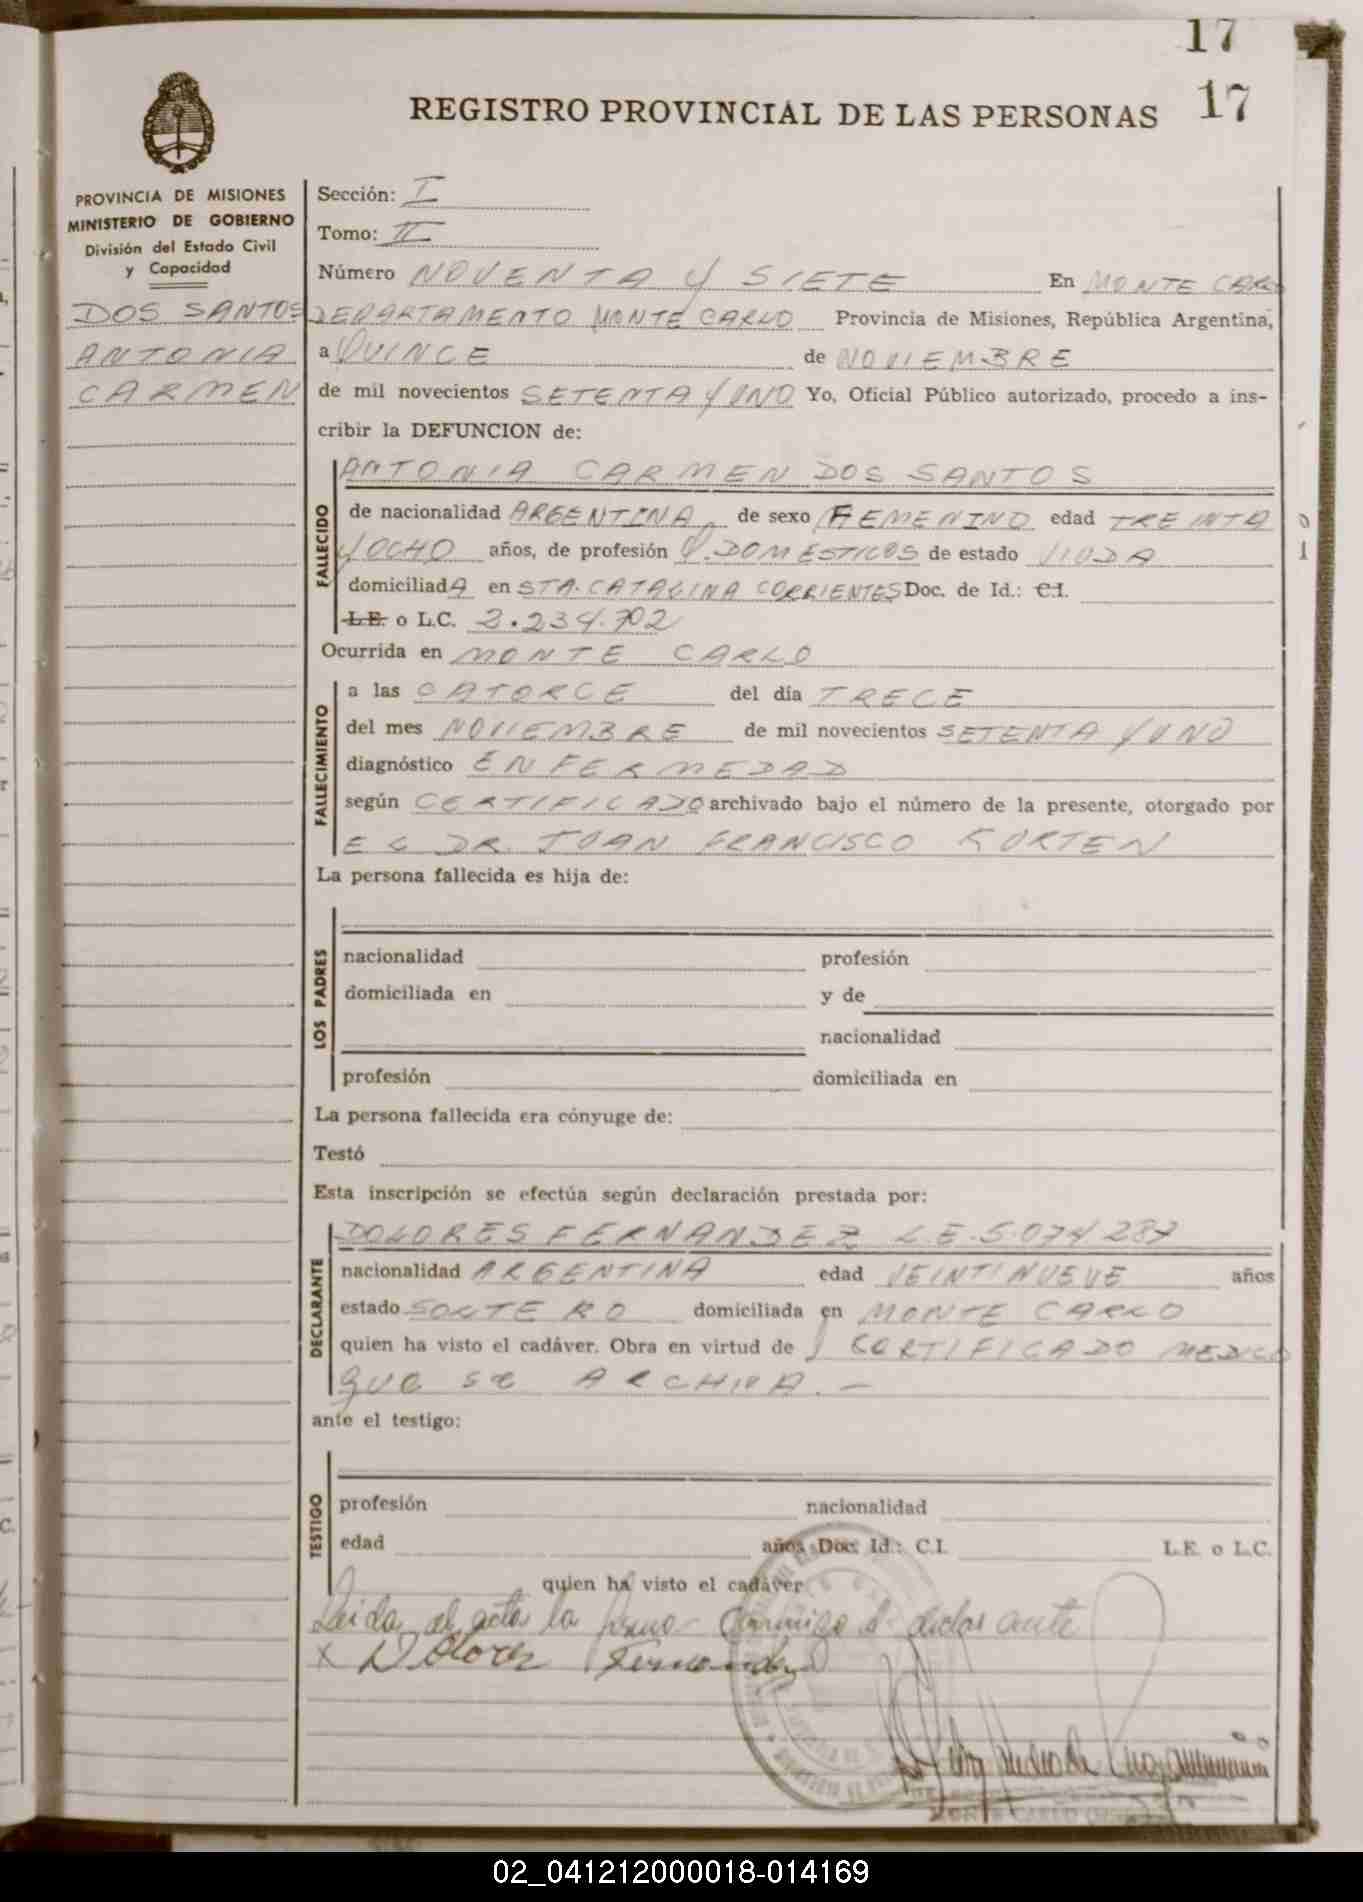 17
17
REGISTRO PROVINCIAL DE LAS PERSONAS
PROVINCIA DE MISIONES
MINISTERIO DE GOBIERNO
División del Estado Civil
y Capacidad
DOS SANTOS
ANTONIA
CARMEN
Sección: I
Tomo: II
Número NOVENTA Y SIETE En MONTE CARLO
DEPARTAMENTO MONTE CARLO Provincia de Misiones, República Argentina,
a QUINCE de NOVIEMBRE
de mil novecientos SETENTA Y UNO Yo, Oficial Público autorizado, procedo a ins-
cribir la DEFUNCION de:
FALLECIDO
ANTONIA CARMEN DOS SANTOS
de nacionalidad ARGENTINA, de sexo FEMENINO edad TREINTA
Y OCHO años, de profesión Q. DOMESTICOS de estado VIUDA
domiciliadA en STA. CATALINA CORRIENTES Doc. de Id.: C.I.
L.E. o L.C. 2.234.702
Ocurrida en MONTE CARLO
FALLECIMIENTO
a las CATORCE del día TRECE
del mes NOVIEMBRE de mil novecientos SETENTA Y UNO
diagnóstico ENFERMEDAD
según CERTIFICADO archivado bajo el número de la presente, otorgado por
EL DR. JUAN FRANCISCO KORTEN
La persona fallecida es hija de:
LOS PADRES
nacionalidad profesión
domiciliada en y de
nacionalidad
profesión domiciliada en
La persona fallecida era cónyuge de:
Testó
Esta inscripción se efectúa según declaración prestada por:
DECLARANTE
DOLORES FERNANDEZ L.E. 5.074.287
nacionalidad ARGENTINA edad VEINTINUEVE años
estado SOLTERO domiciliada en MONTE CARLO
quien ha visto el cadáver. Obra en virtud de CERTIFICADO MEDICO
QUE SE ARCHIVA.-
ante el testigo:
TESTIGO
profesión nacionalidad
edad años Doc. Id.: C.I. L.E. o L.C.
quien ha visto el cadáver
Leida el acta la conmigo
x Dolores Fernandez
MONTE CARLO
02_041212000018-014169